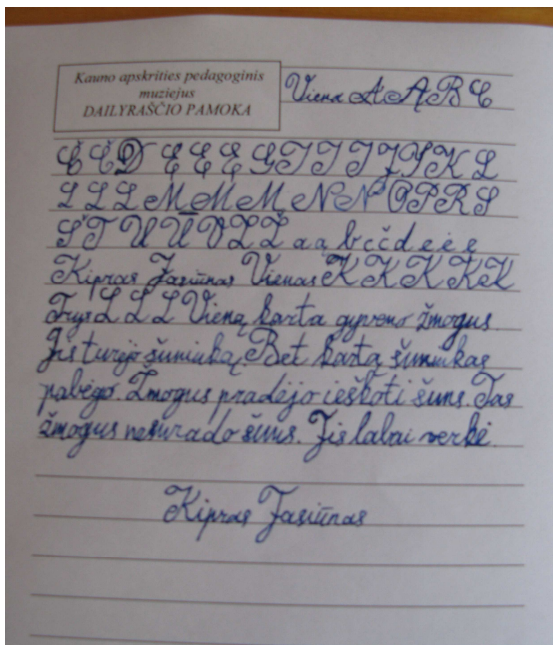 Kauno apskrities pedagoginis
muziejus
DAILYRAŠČIO PAMOKA
Viena A Ą A B C
Č Č D E Ę Ė G I Į I J Y K L
L L L M M M N N O P R S
Š T U Ū V Z Ž a ą b c č d e ė ę
Kipras Jasiūnas Vienas K K K K K
Trys L L L Vieną karta gyveno žmogus.
Jis turėjo šuniuką. Bet kartą šuniukas
pabėgo. Žmogus pradėjo ieškoti šuns. Tas
žmogus nesurado šuns. Jis labai verkė.
Kipras Jasiūnas